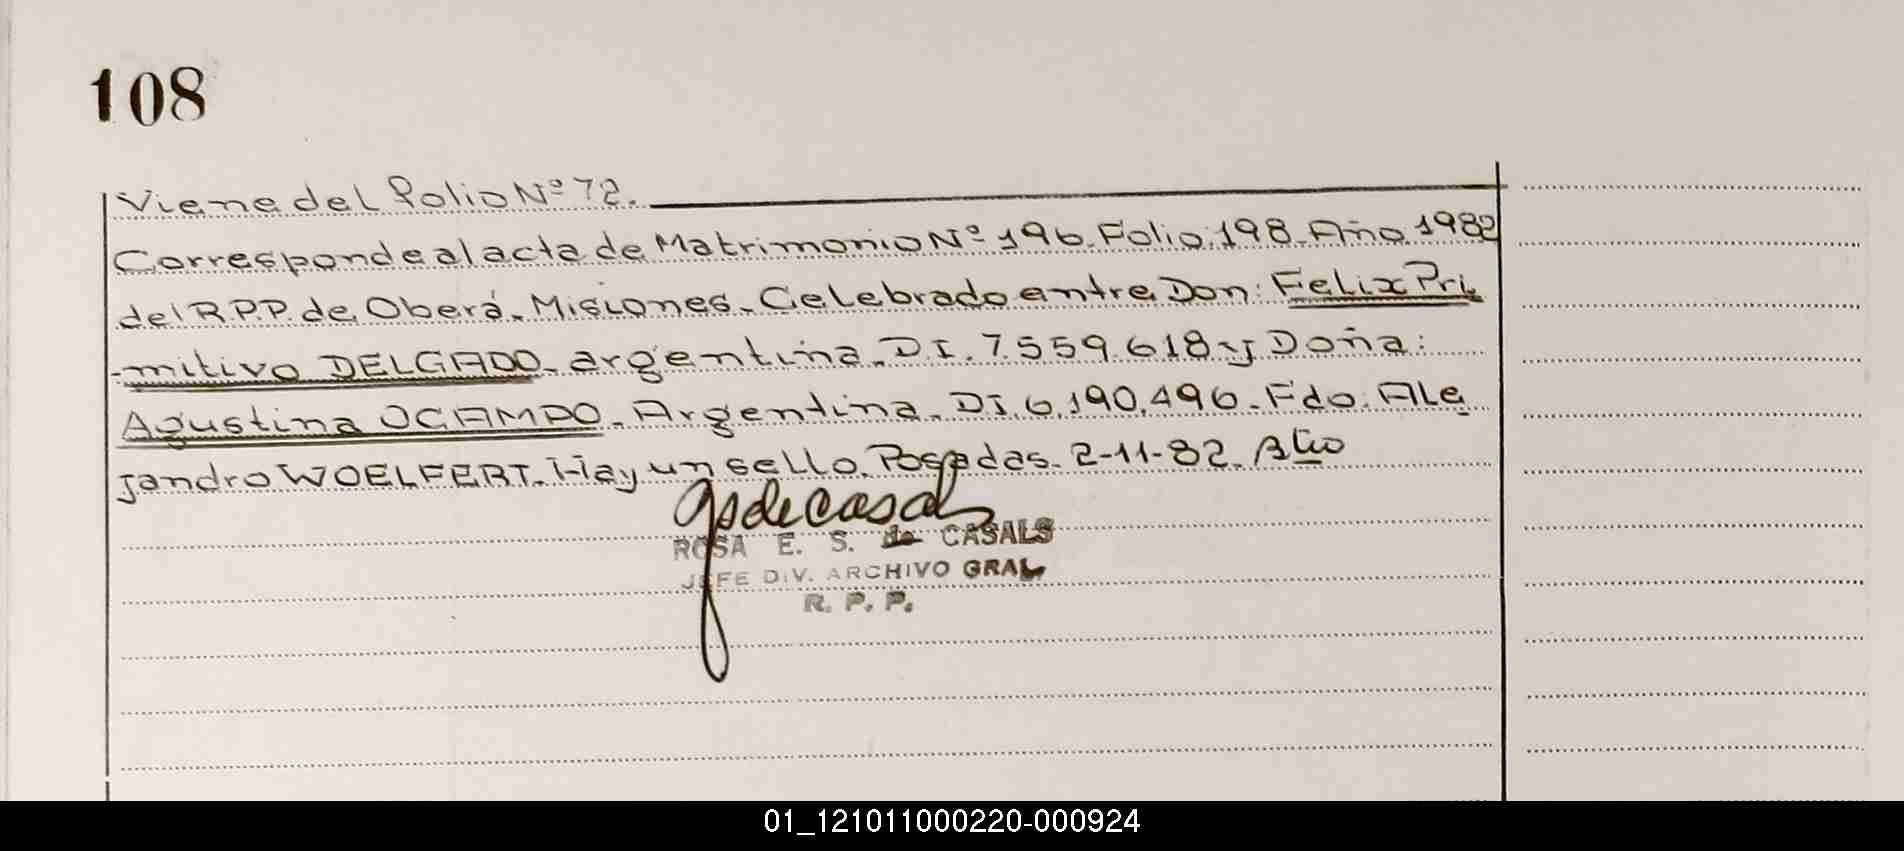 108
Viene del Folio Nº 72.
Corresponde al acta de Matrimonio Nº 196. Folio 198. Año 1982
del R.P.P. de Oberá. Misiones. Celebrado entre Don: Felix Pri
-mitivo DELGADO. argentina. D.I. 7.559.618 y Doña:
Agustina OCAMPO. Argentina. DI. 6.190.496. Fdo. Ale
jandro WOELFERT. Hay un sello. Posadas. 2-11-82.
ROSA E. S. de CASALS
JEFE DIV. ARCHIVO GRAL
R. P. P.
01_121011000220-000924